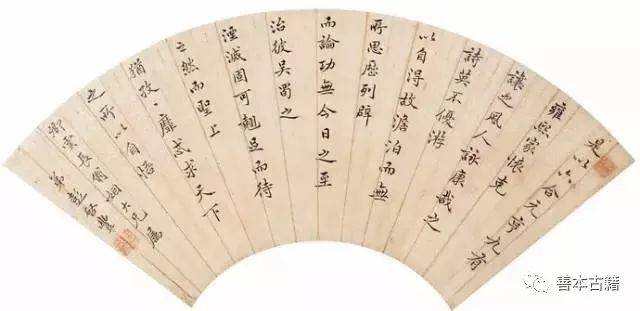 是以六合元亨九有
雍熙家懷克
讓之風人詠康哉之
詩莫不優游
以自得故澹泊而無
所思歷列辟
而論功無今日之至
治彼吳蜀之
湮滅固可翹足而待
之然而聖上
猶孜〻靡忒求天下
之所以自悟
大兄屬
弟彭啓豐
善本古籍